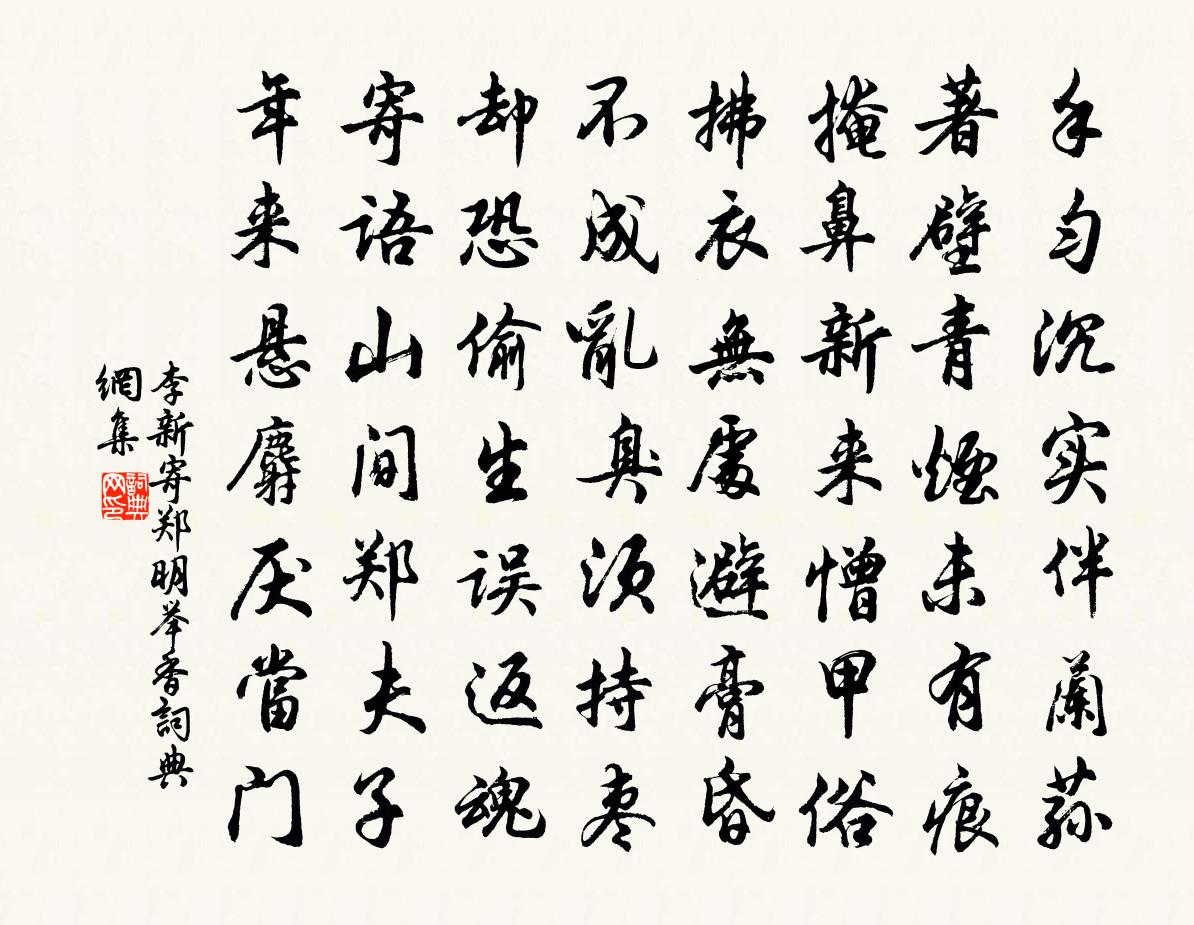 手匀沉实伴蘭荪
著壁青煙未有痕
掩鼻新来憎甲俗
拂衣無處避膏昏
不成亂臭须持枣
却恐偷生误返魂
寄语山间郑夫子
年来悬麝厌當门
李新寄郑明举香詞典
網集
詞典
网印